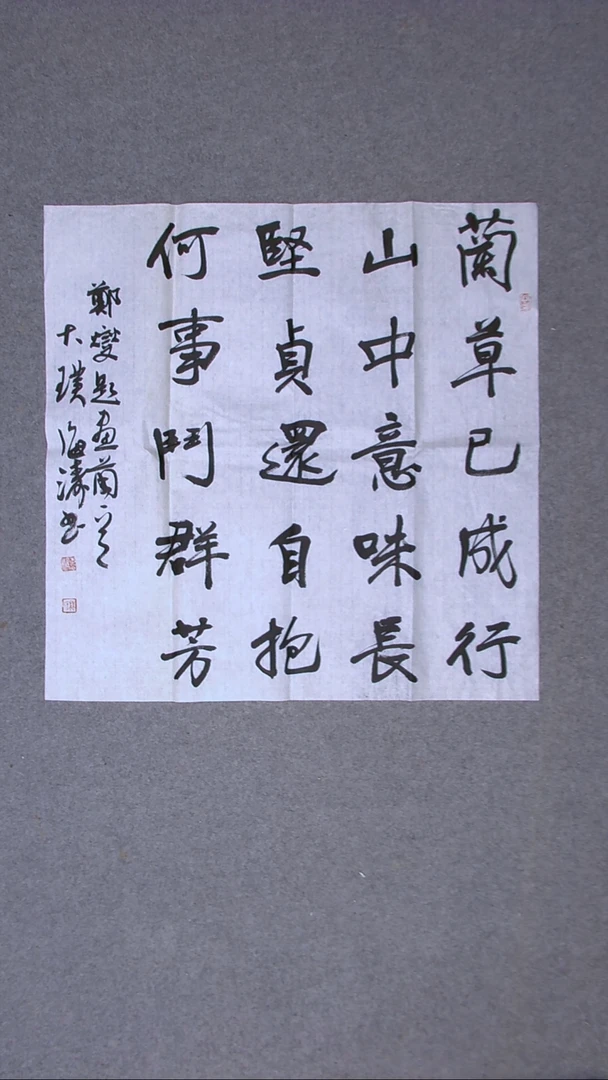 蘭草已成行
山中意味長
堅貞還自抱
何事鬥群芳
鄭燮題画蘭一首
大璞海濤書